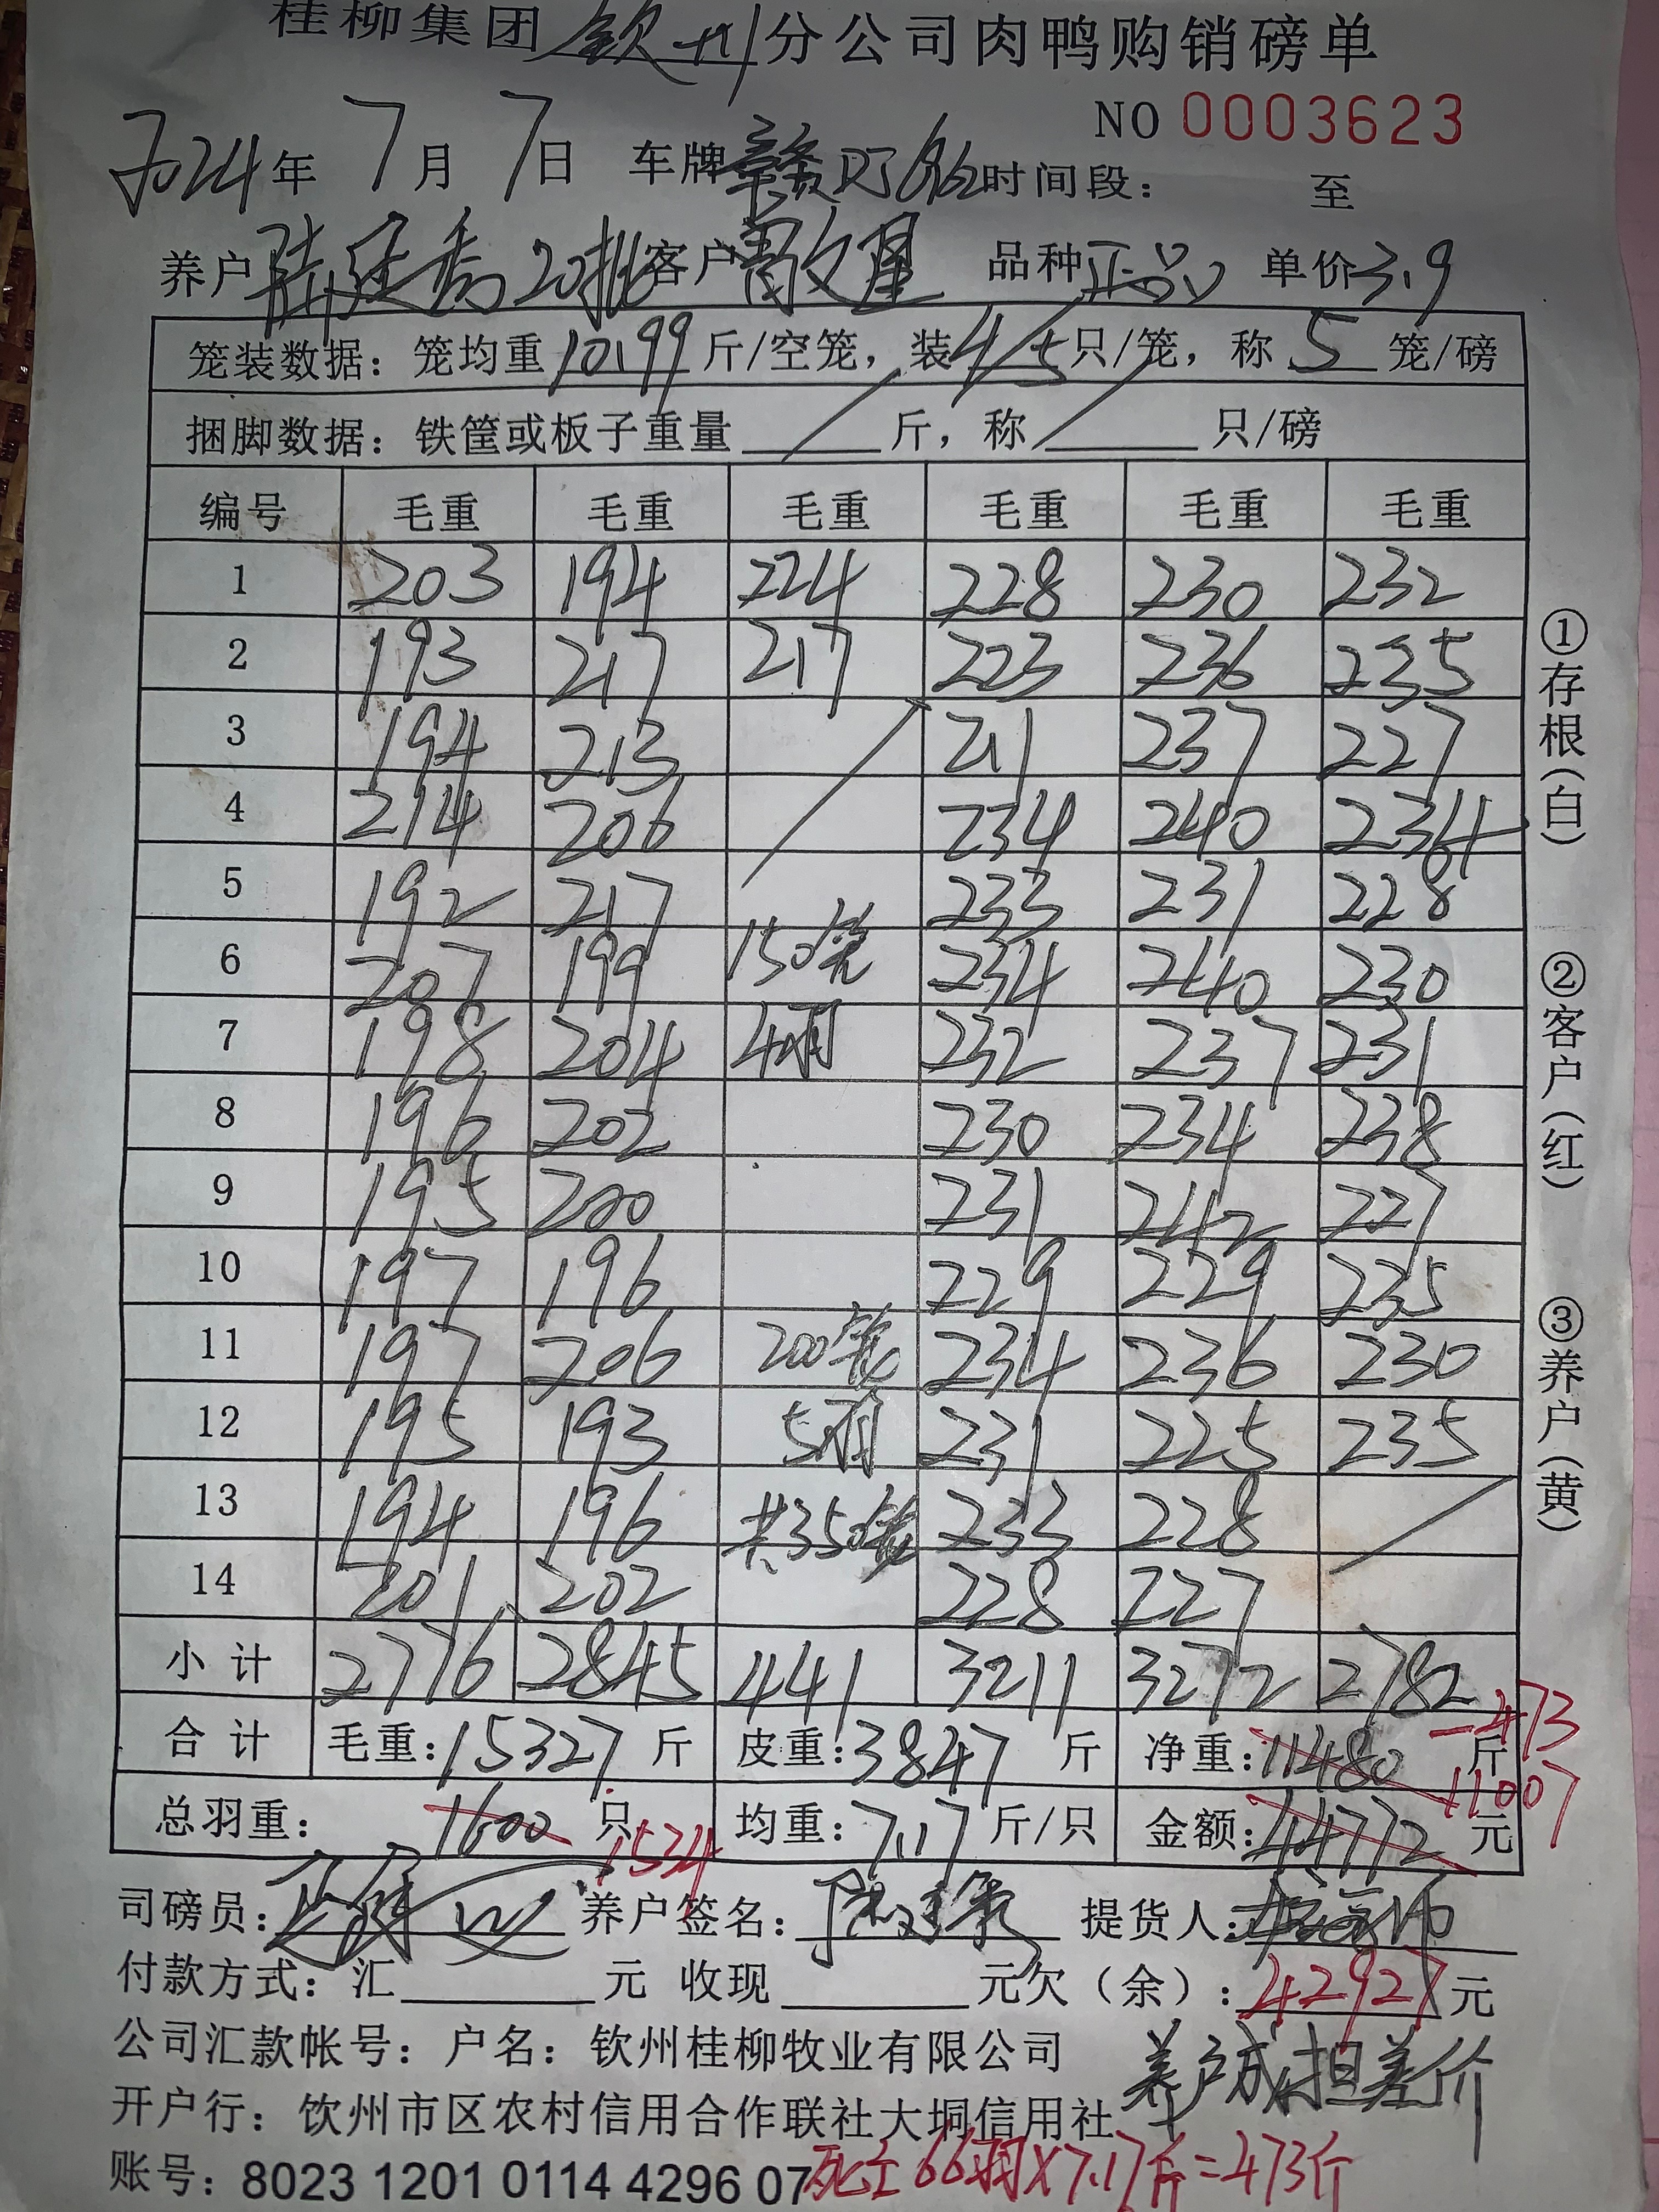 桂柳集团钦州分公司肉鸭购销磅单
NO 0003623
2024年 7月 7日 车牌赣 时间段： 至
养户 20批 客户 品种正品 单价3.9
笼装数据：笼均重10.99斤/空笼，装4/5只/笼，称5笼/磅
捆脚数据：铁筐或板子重量 斤，称 只/磅
编号 毛重 毛重 毛重 毛重 毛重 毛重
1 203 194 224 228 230 232
2 193 217 217 223 236 235
3 194 213 211 237 227
4 214 206 234 240 234
5 192 217 233 231 228
6 207 199 150笼 234 240 230
7 198 204 4羽 232 237 231
8 196 202 230 234 238
9 195 200 231 242 227
10 197 196 229 229 235
11 197 206 200笼 234 236 230
12 195 193 5羽 231 225 235
13 194 196 共350笼 233 228
14 201 202 228 227
小计 2776 2845 441 3211 3272 2782
-473
合计 毛重：15327斤 皮重：3847斤 净重：11480斤
11007
总羽重： 1600只 均重：7.17斤/只 金额：44772元
1534
司磅员： 养户签名： 提货人：
付款方式：汇 元 收现 元欠（余）：42927元
公司汇款帐号：户名：钦州桂柳牧业有限公司
养户承担差价
开户行：钦州市区农村信用合作联社大垌信用社
账号：8023 1201 0114 4296 07
死亡66羽×7.17斤=473斤
①存根（白）
②客户（红）
③养户（黄）